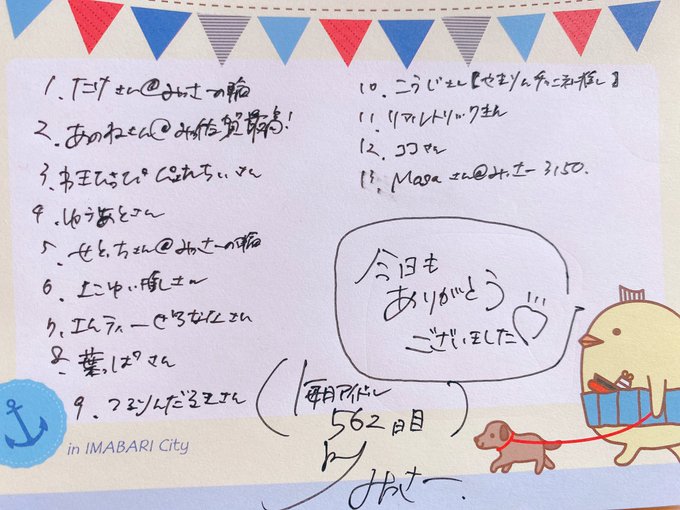 1. たけさん@みっさーの輪
2. あのねさん@みっ佐賀最高!
3. ぴよれちぃさん
4. しゅうあとさん
5. せとっちさん@みっさーの輪
6. よこゆい推しさん
7. エムディーぜろなな さん
8. 葉っぱさん
9. さん
10. こうじさん
11. リアルトリックさん
12. ココさん
13. Masaさん@みっさー3150.
今日も
ありがとう
ございました
毎日アイドル
562日目
by
みっさー.
in IMABARI City